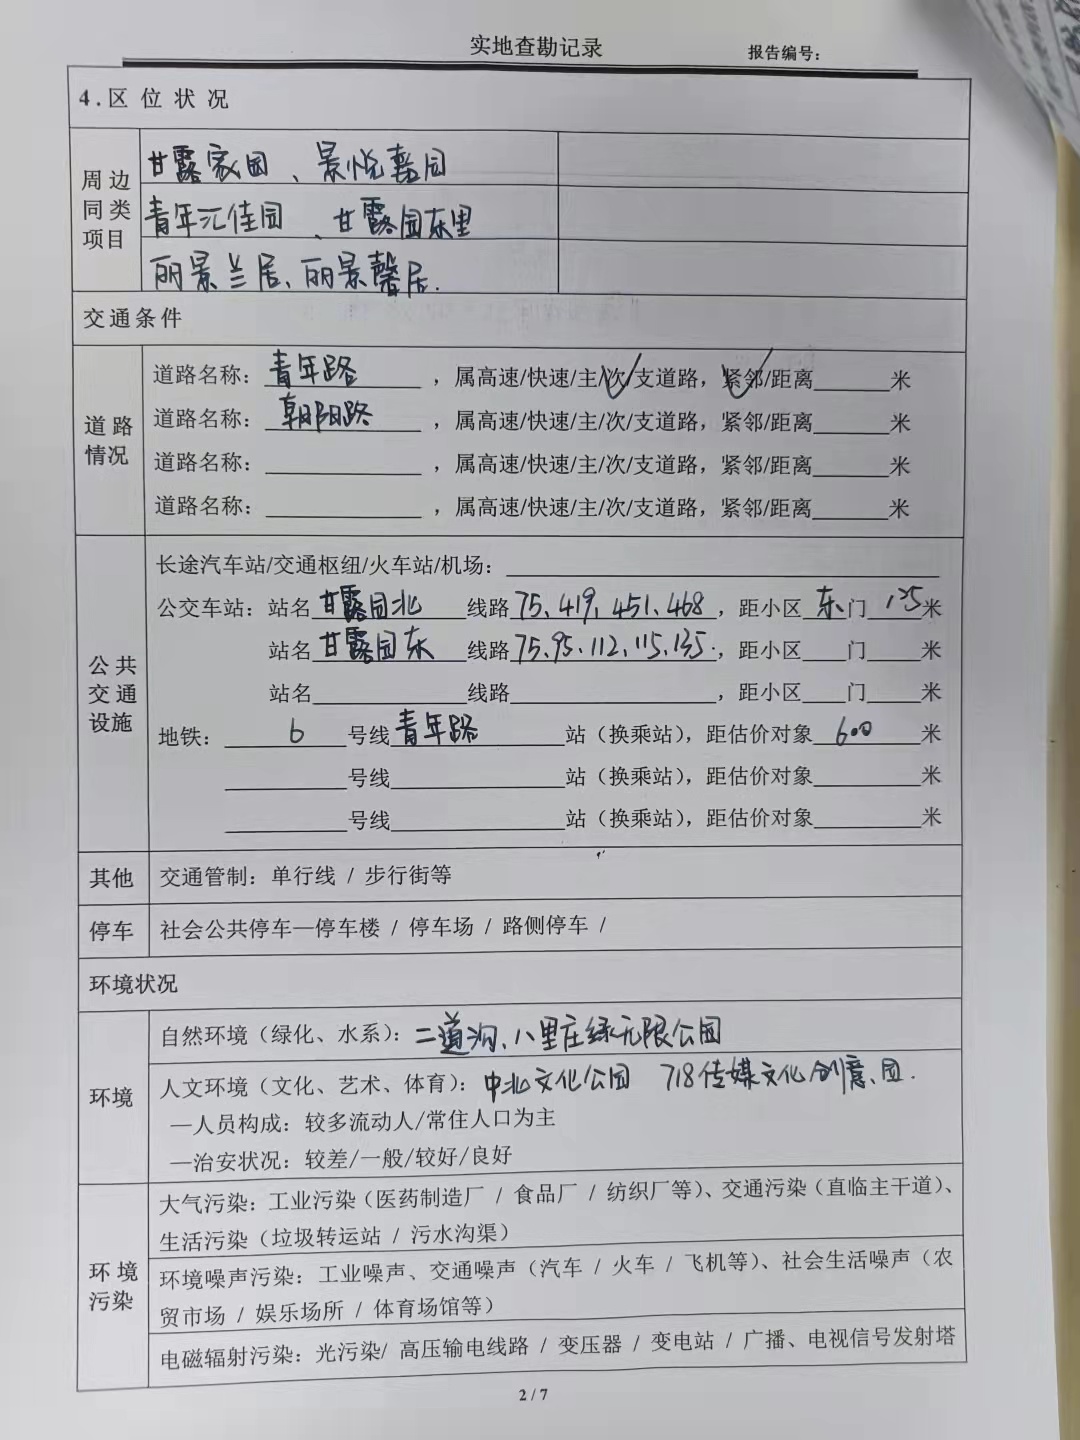 实地查勘记录 报告编号:
4.区位状况
周边同类项目
甘露家园、景悦嘉园
青年汇佳园、甘露园东里
丽景兰居、丽景馨居.
交通条件
道路情况
道路名称: 青年路 ,属高速/快速/主/次/支道路,紧邻/距离____米
道路名称: 朝阳路 ,属高速/快速/主/次/支道路,紧邻/距离____米
道路名称:____ ,属高速/快速/主/次/支道路,紧邻/距离____米
道路名称:____ ,属高速/快速/主/次/支道路,紧邻/距离____米
公共交通设施
长途汽车站/交通枢纽/火车站/机场:____
公交车站:站名 甘露园北 线路 75、419、451、468 ,距小区 东 门 125 米
站名 甘露园东 线路 75、95、112、115、135. ,距小区____门____米
站名____线路____,距小区____门____米
地铁: 6 号线 青年路 站(换乘站),距估价对象 600 米
____号线____站(换乘站),距估价对象____米
____号线____站(换乘站),距估价对象____米
其他 交通管制:单行线 / 步行街等
停车 社会公共停车—停车楼 / 停车场 / 路侧停车 /
环境状况
环境
自然环境(绿化、水系):二道沟、八里庄绿无限公园
人文环境(文化、艺术、体育):中北文化公园 718传媒文化创意园.
—人员构成:较多流动人/常住人口为主
—治安状况:较差/一般/较好/良好
环境污染
大气污染:工业污染(医药制造厂 / 食品厂 / 纺织厂等)、交通污染(直临主干道)、
生活污染(垃圾转运站 / 污水沟渠)
环境噪声污染:工业噪声、交通噪声(汽车 / 火车 / 飞机等)、社会生活噪声(农
贸市场 / 娱乐场所 / 体育场馆等)
电磁辐射污染:光污染/ 高压输电线路 / 变压器 / 变电站 / 广播、电视信号发射塔
2 / 7